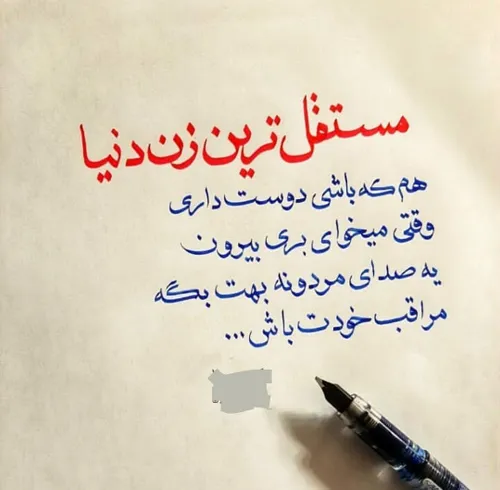 مستقل ترین زن دنیا
هم که باشی دوست داری
وقتی میخوای بری بیرون
یه صدای مردونه بهت بگه
مراقب خودت باش...